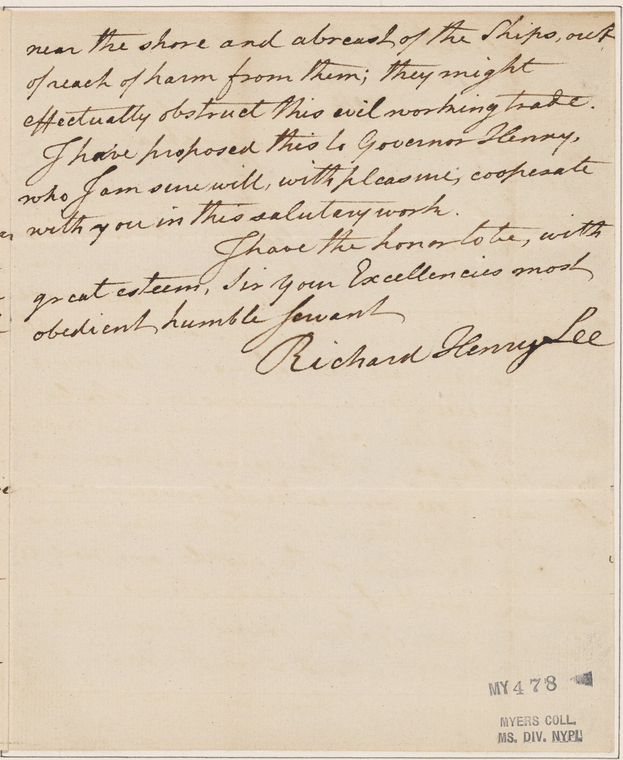 near the shore and abreast of the Ships, out
of reach of harm from them; they might
effectually obstruct this evil working trade.
I have proposed this to Governor Henry,
who I am sure will, with pleasure, cooperate
with you in this salutary work.
I have the honor to be, with
great esteem, Sir Your Excellencies most
obedient humble servant
Richard Henry Lee
MY478
MYERS COLL.
MS. DIV. NYPL